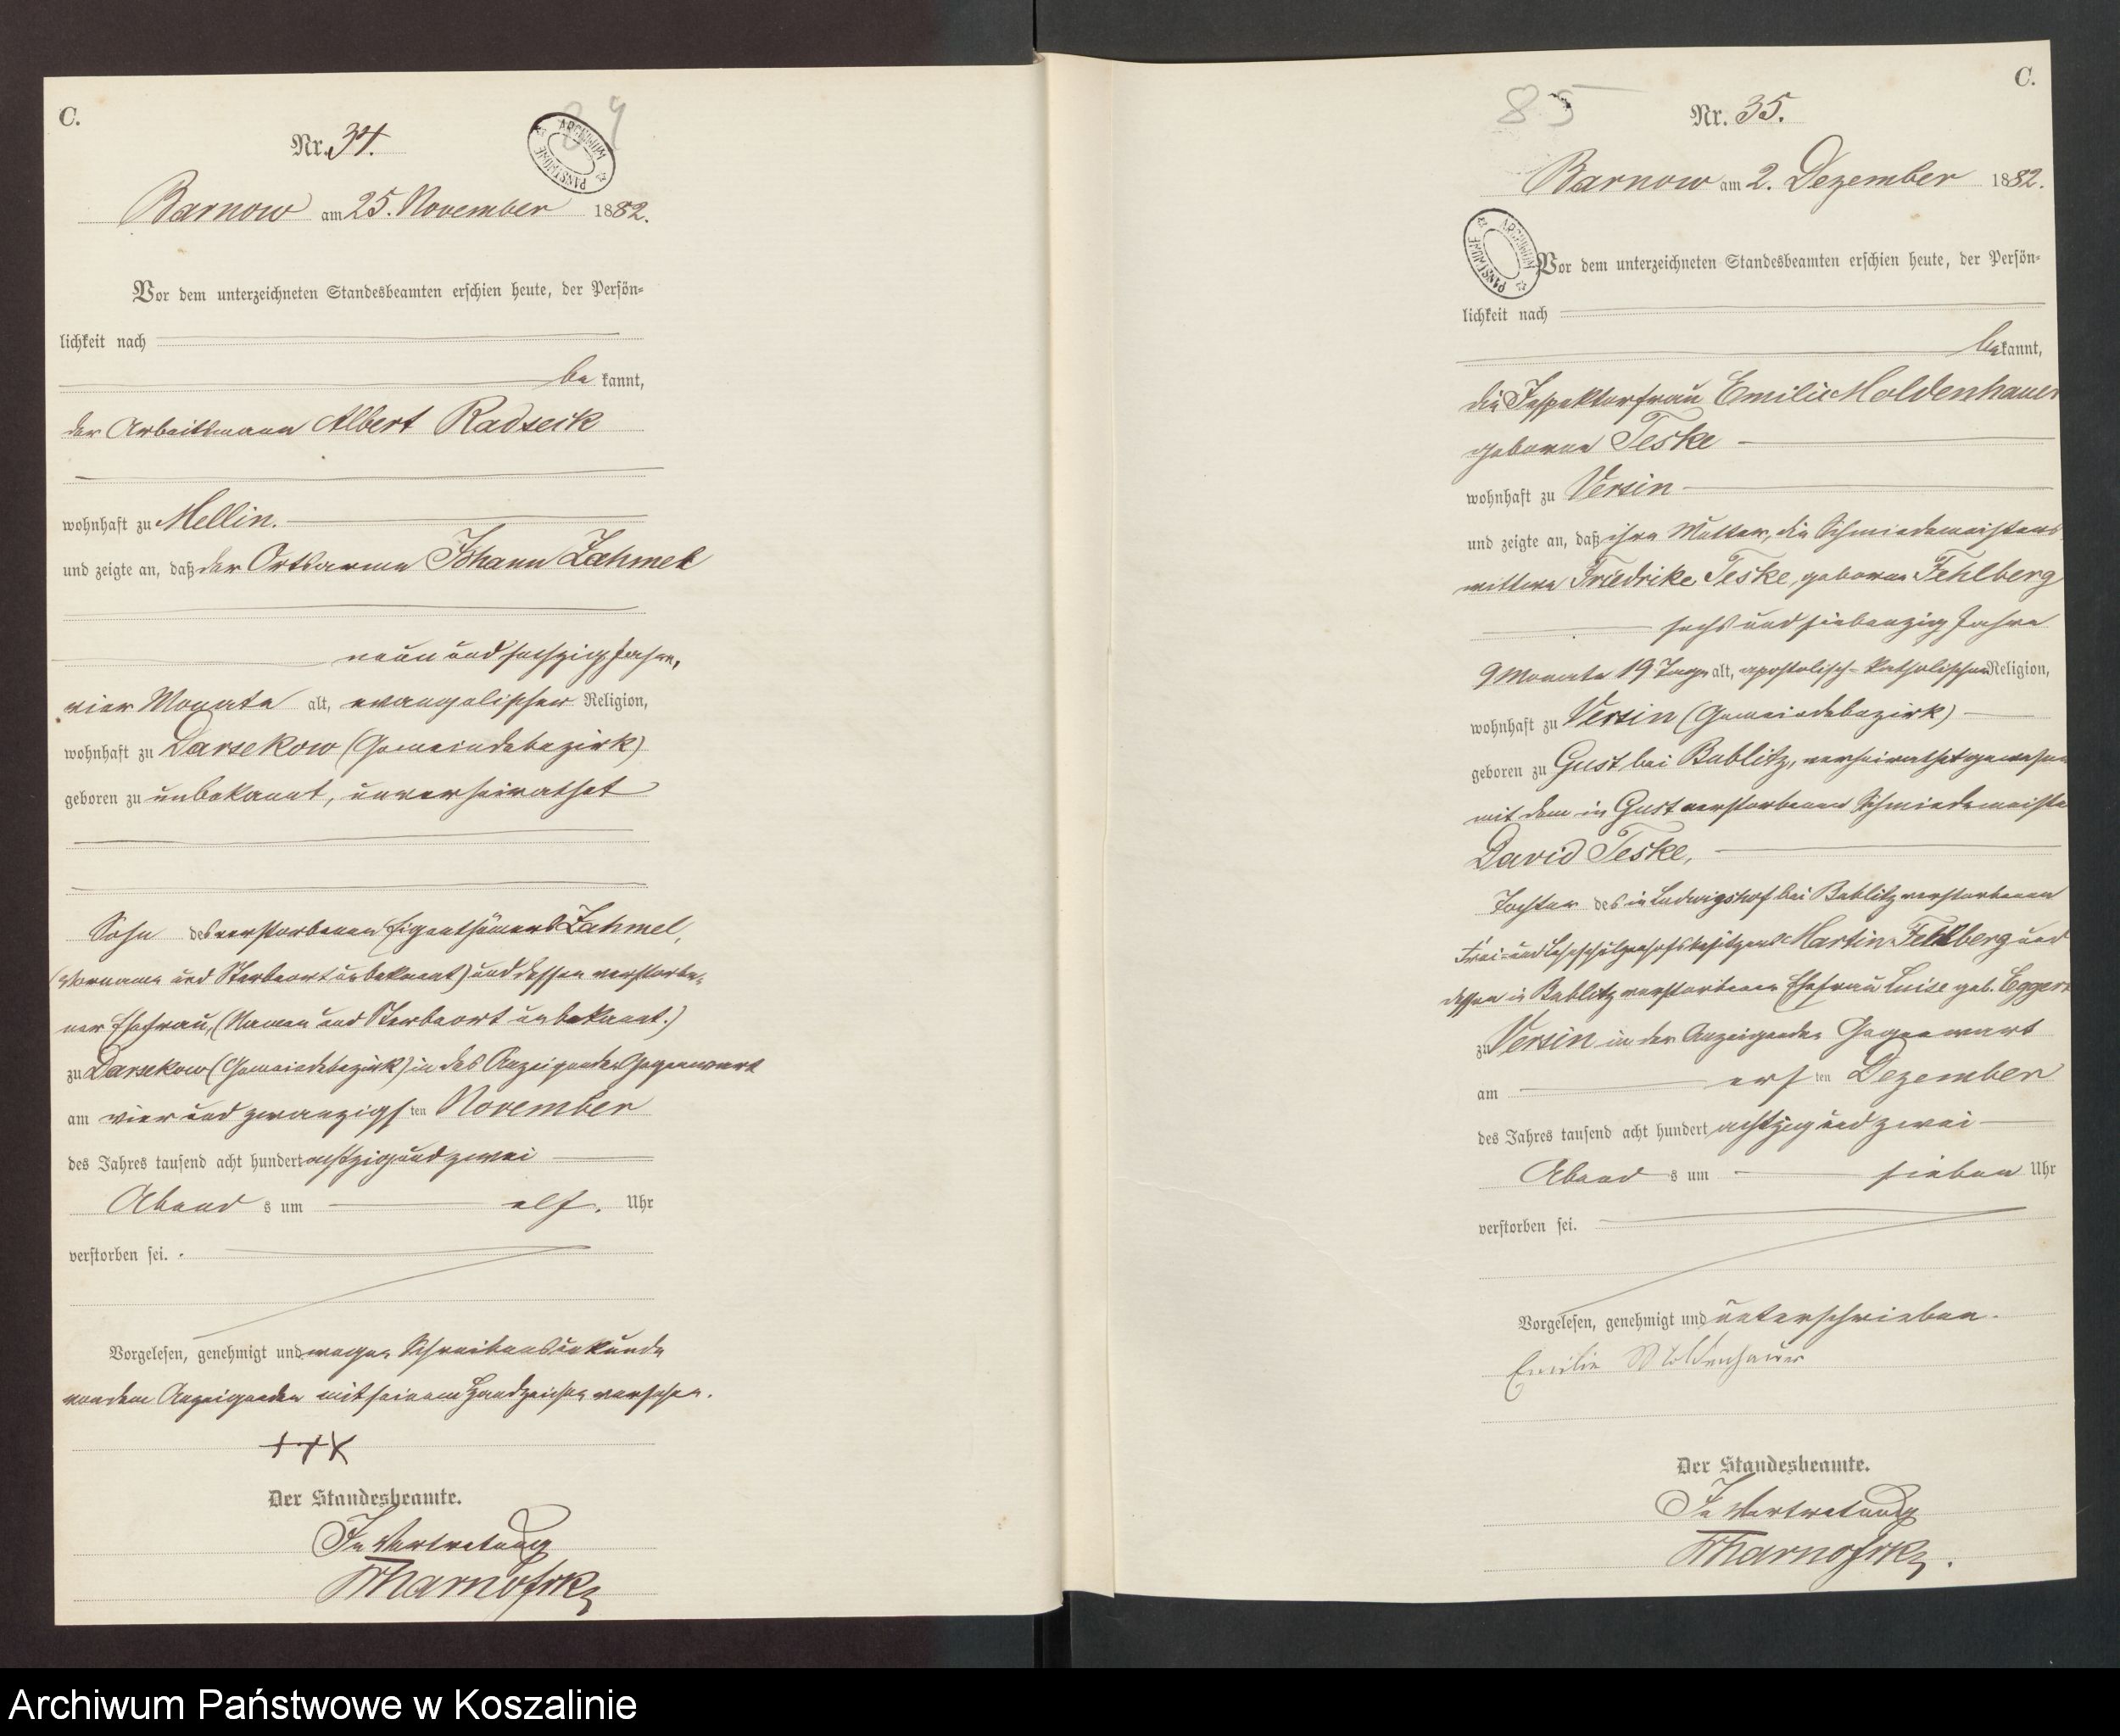 C.
84
Nr. 34.
ARCHIWUM PAŃSTWOWE
Barnow am 25. November 1882.
Vor dem unterzeichneten Standesbeamten erschien heute, der Persön-
lichkeit nach
be kannt,
der Arbeitsmann Albert Radseck
wohnhaft zu Mellin.
und zeigte an, daß der Ortsarme Johann Zahmel
neun und sechzig Jahre,
vier Monate alt, evangelischer Religion,
wohnhaft zu Darsekow (Gemeindebezirk)
geboren zu unbekannt, unverheirathet
Sohn des verstorbenen Eigenthümers Zahmel,
(Vorname und Sterbeort unbekannt) und dessen verstorbe-
ner Ehefrau, (Namen und Sterbeort unbekannt.)
zu Darsekow (Gemeindebezirk) in des Anzeigenden Gegenwart
am vier und zwanzigsten November
des Jahres tausend acht hundert achtzig und zwei
Abend s um elf. Uhr
verstorben sei.
Vorgelesen, genehmigt und wegen Schreibensunkunde
von dem Anzeigenden mit seinem Handzeichen versehen.
+++
Der Standesbeamte.
In Vertretung
C.
85
Nr. 35.
Barnow am 2. Dezember 1882.
ARCHIWUM PAŃSTWOWE
Vor dem unterzeichneten Standesbeamten erschien heute, der Persön-
lichkeit nach
bekannt,
die Inspektorfrau Emilie Moldenhauer
geborne Teske
wohnhaft zu Versin
und zeigte an, daß ihre Mutter, die Schmiedemeisters
wittwe Friedrike Teske, geborne Fehlberg
sechs und siebenzig Jahre
9 Monate 19 Tage alt, apostolisch-katholischer Religion,
wohnhaft zu Versin (Gemeindebezirk)
geboren zu Gust bei Bublitz, verheirathet gewesen
mit dem in Gust verstorbenen Schmiedemeister
David Teske,
Tochter des in Ludwigshof bei Bublitz verstorbenen
Frei- und Lehnschulzenhofsbesitzers Martin Fehlberg und
dessen in Bublitz verstorbenen Ehefrau Luise geb. Eggert
zu Versin in der Anzeigenden Gegenwart
am ersten Dezember
des Jahres tausend acht hundert achtzig und zwei
Abend s um sieben Uhr
verstorben sei.
Vorgelesen, genehmigt und unterschrieben.
Emilie Moldenhauer
Der Standesbeamte.
In Vertretung
Archiwum Państwowe w Koszalinie